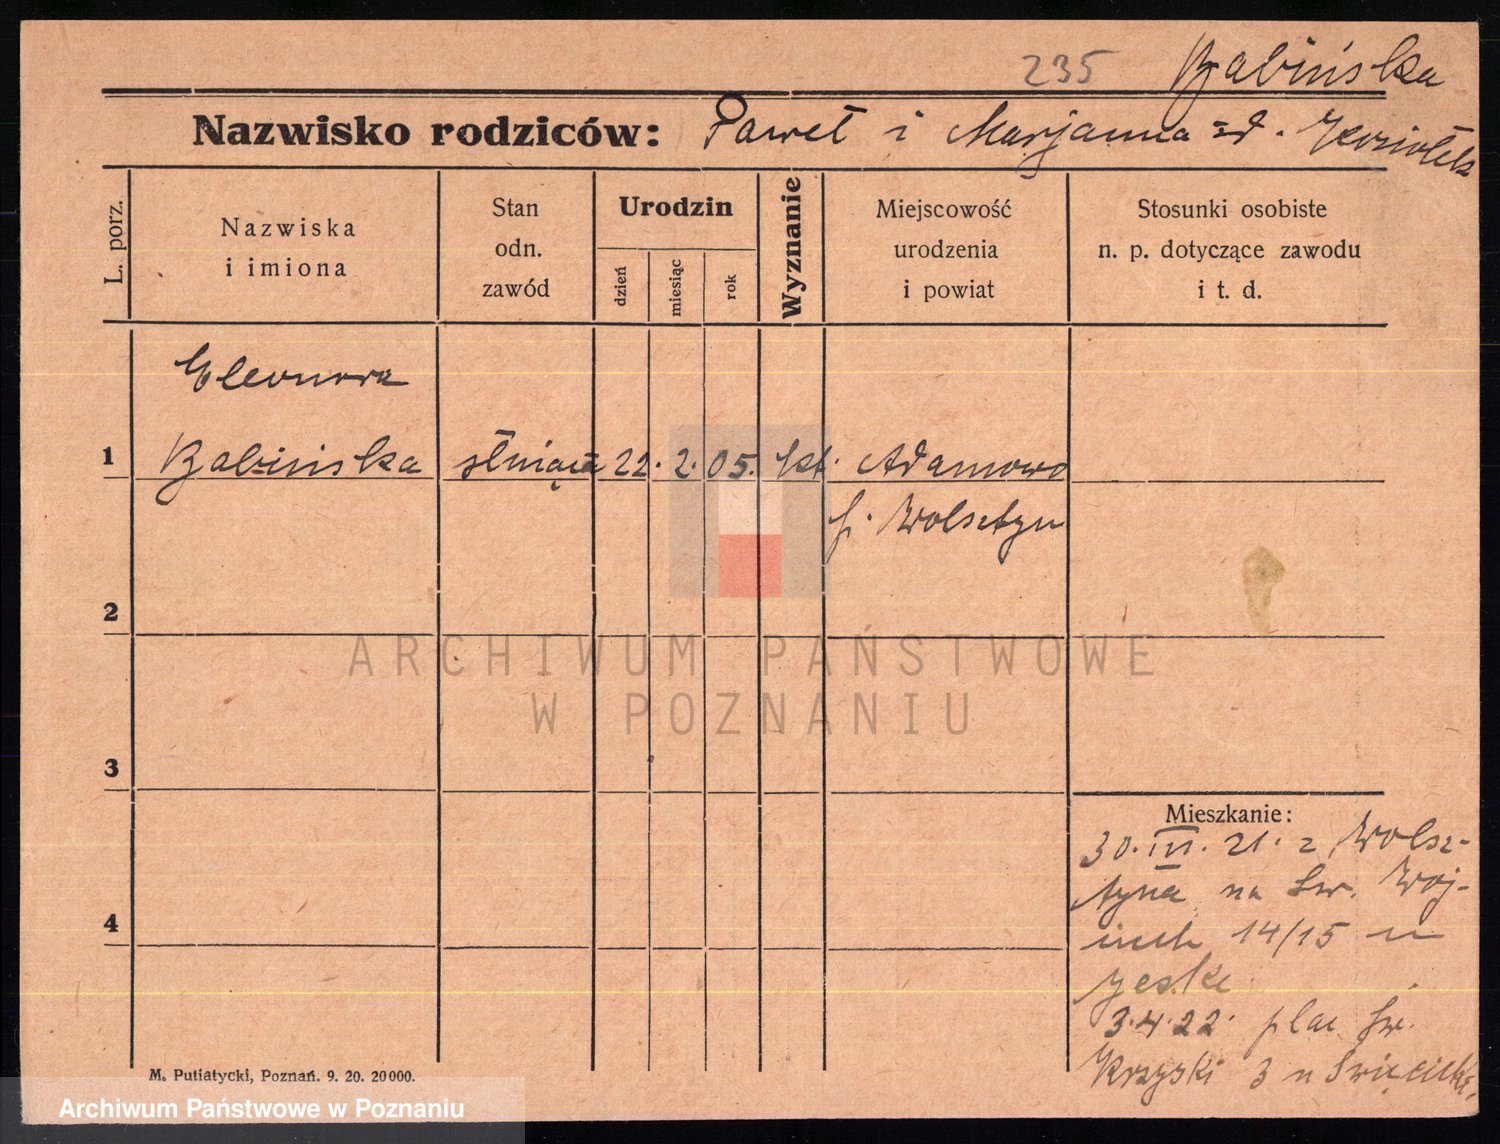 235 Babińska
Nazwisko rodziców: Paweł i Marjanna zd.
L. porz.
Nazwiska
i imiona
Stan
odn.
zawód
Urodzin
dzień
miesiąc
rok
Wyznanie
Miejscowość
urodzenia
i powiat
Stosunki osobiste
n. p. dotyczące zawodu
i t. d.
Eleonora
1 Babińska służąca 22. 2. 05. kat. Adamowo
p. Wolsztyn
2
3
4
Mieszkanie:
30. III. 21. z Wolsz-
tyna na Św. Woj-
ciech 14/15 u
Jeske
3.4.22. plac Św.
Krzyski 3 u
M. Putiatycki, Poznań. 9. 20. 20000.
ARCHIWUM PAŃSTWOWE
W POZNANIU
Archiwum Państwowe w Poznaniu